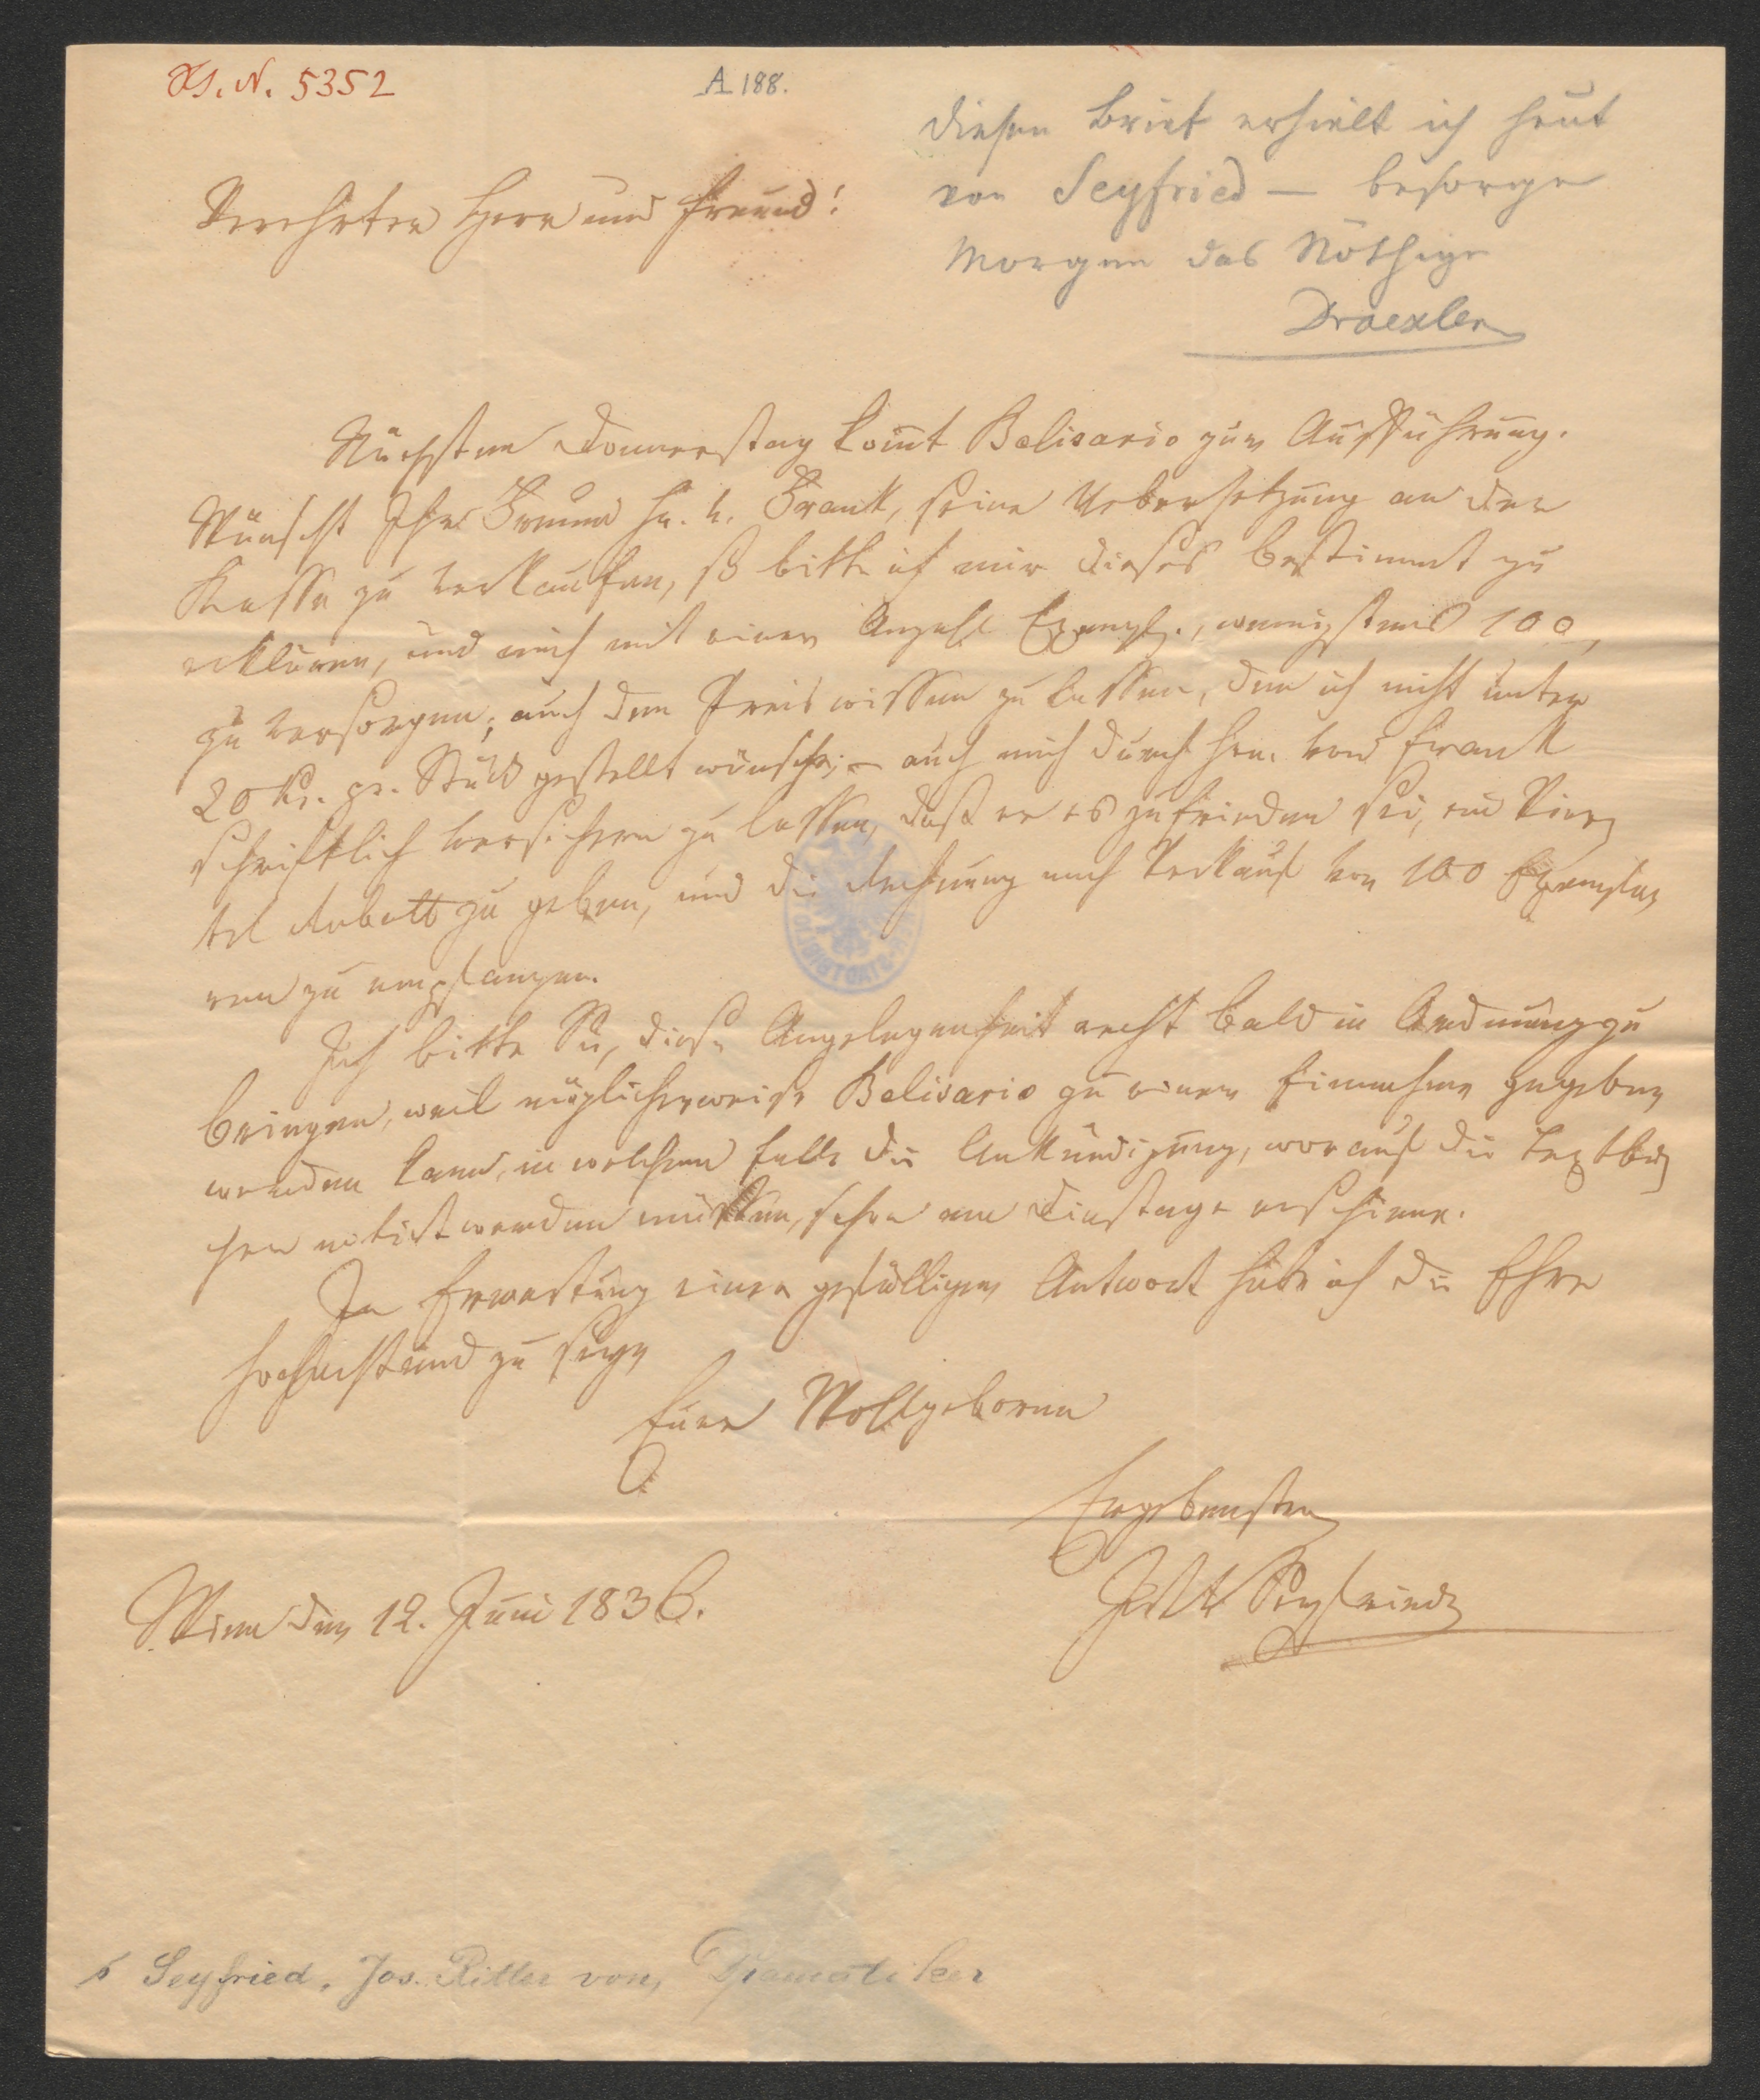 H. I. N. 5352
A 188.
diesen Brief erhielt ich heut
von Seyfried — besorge
Morgen das Nöthige
Draexler
Verehrter Herr und Freund!
Nächsten Donnerstag kom̅t Belisario zur Aufführung.
Wünscht Ihr Freund Hr. v. Frank, seine Uebersetzung an der
Kasse zu verkaufen, so bitte ich mir dieses bestimmt zu
erklären, und mich mit einer Anzahl Exempl., wenigstens 100,
zu versorgen; auch den Preis wissen zu lassen, den ich nicht unter
20 kr. pr. Stück gestellt wünsche; – auch mich durch Hrn. von Frank
schriftlich versichern zu lassen, daß er es zufrieden sei, ein Vier
tel Rabatt zu geben, und die Rechnung nach Verkauf von 100 Exempla
ren zu empfangen.
Ich bitte Sie, diese Angelegenheit recht bald in Ordnung zu
bringen, weil möglicherweise Belisario zu einer Einnahme gegeben
werden kann, in welchem Falle die Ankündigung, worauf die Textbü
cher notirt werden müssen, schon am Dienstage erschiene.
In Erwartung einer gefälligen Antwort habe ich die Ehre
hochachtend zu seyn
Euer Wohlgeboren
Ergebenster
Seyfried
Wien den 12. Juni 1836.
Seyfried, Jos. Ritter von, Dramatiker